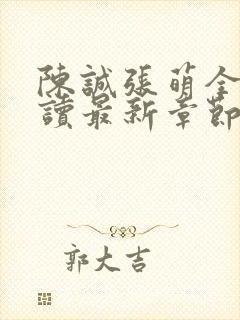 陳誠張萌全
讀最新章節
郭大吉